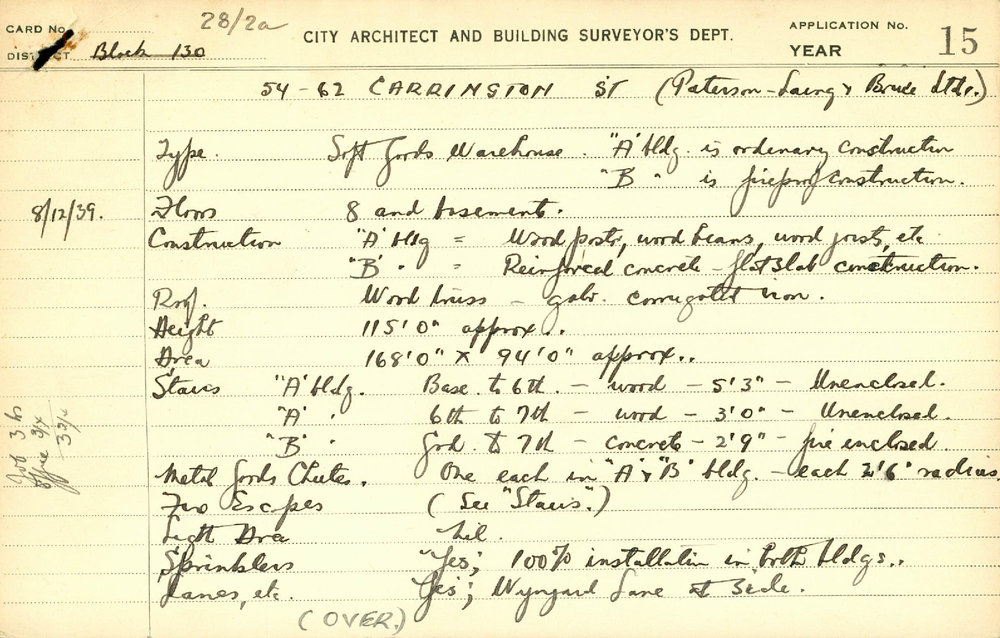 CARD No. 28/2a CITY ARCHITECT AND BUILDING SURVEYOR'S DEPT. APPLICATION No. 15
DISTRICT Block 130 YEAR
54-62 CARRINGTON ST (Paterson-Laing & Bruce Ltd.)
Type. Soft Goods Warehouse. "A" bldg. is ordinary construction
"B" " is fireproof construction.
8/12/39. Floors 8 and basements.
Construction "A" bldg = Wood posts, wood beams, wood joists, etc
"B" " = Reinforced concrete - flat slab construction.
Roof. Wood truss - galv. corrugated iron.
Height 115'0" approx..
Area 168'0" x 94'0" approx..
Stairs "A" bldg. Base. to 6th. - wood - 5'3" - Unenclosed.
"A" " 6th to 7th - wood - 3'0" - Unenclosed.
"B" " Grd. to 7th - concrete - 2'9" - fire enclosed
Metal Goods Chutes. One each in "A" & "B" bldg. - each 2'6" radius.
Fire Escapes (See "Stairs".)
Light Area Nil.
Sprinklers Yes; 100% installation in both bldgs..
Lanes, etc. Yes; Wynyard Lane at side.
(OVER.)
Job 3 hs
Office